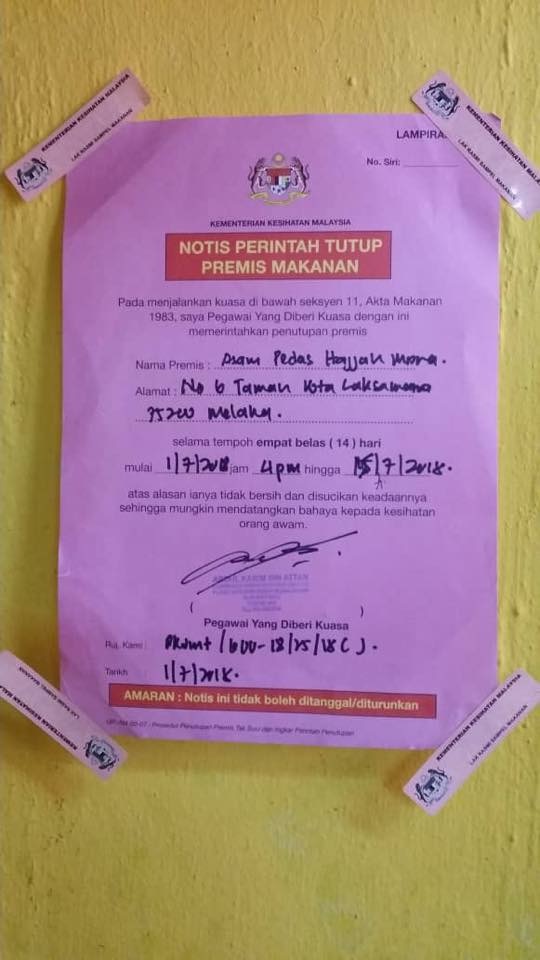 KEMENTERIAN KESIHATAN MALAYSIA
LAK RASMI SAMPEL MAKANAN
KEMENTERIAN KESIHATAN MALAYSIA
LAK RASMI SAMPEL MAKANAN
LAMPIRA
No. Siri:
KEMENTERIAN KESIHATAN MALAYSIA
NOTIS PERINTAH TUTUP
PREMIS MAKANAN
Pada menjalankan kuasa di bawah seksyen 11, Akta Makanan
1983, saya Pegawai Yang Diberi Kuasa dengan ini
memerintahkan penutupan premis
Nama Premis : Asam Pedas Hajjah Mona.
Alamat : No 6 Taman Kota Laksamana
75200 Melaka.
selama tempoh empat belas ( 14 ) hari
mulai 1/7/2018 jam 4pm hingga 15/7/2018.
atas alasan ianya tidak bersih dan disucikan keadaannya
sehingga mungkin mendatangkan bahaya kepada kesihatan
orang awam.
ABDUL KARIM BIN ATTAN
( )
Pegawai Yang Diberi Kuasa
Ruj. Kami : /600-18/25/18( ).
Tarikh : 1/7/2018.
AMARAN : Notis ini tidak boleh ditanggal/diturunkan
Prosedur Penutupan Premis Tak Suci dan Ingkar Perintah Penutupan
LAK RASMI SAMPEL MAKANAN
KEMENTERIAN KESIHATAN MALAYSIA
KEMENTERIAN KESIHATAN MALAYSIA
LAK RASMI SAMPEL MAKANAN